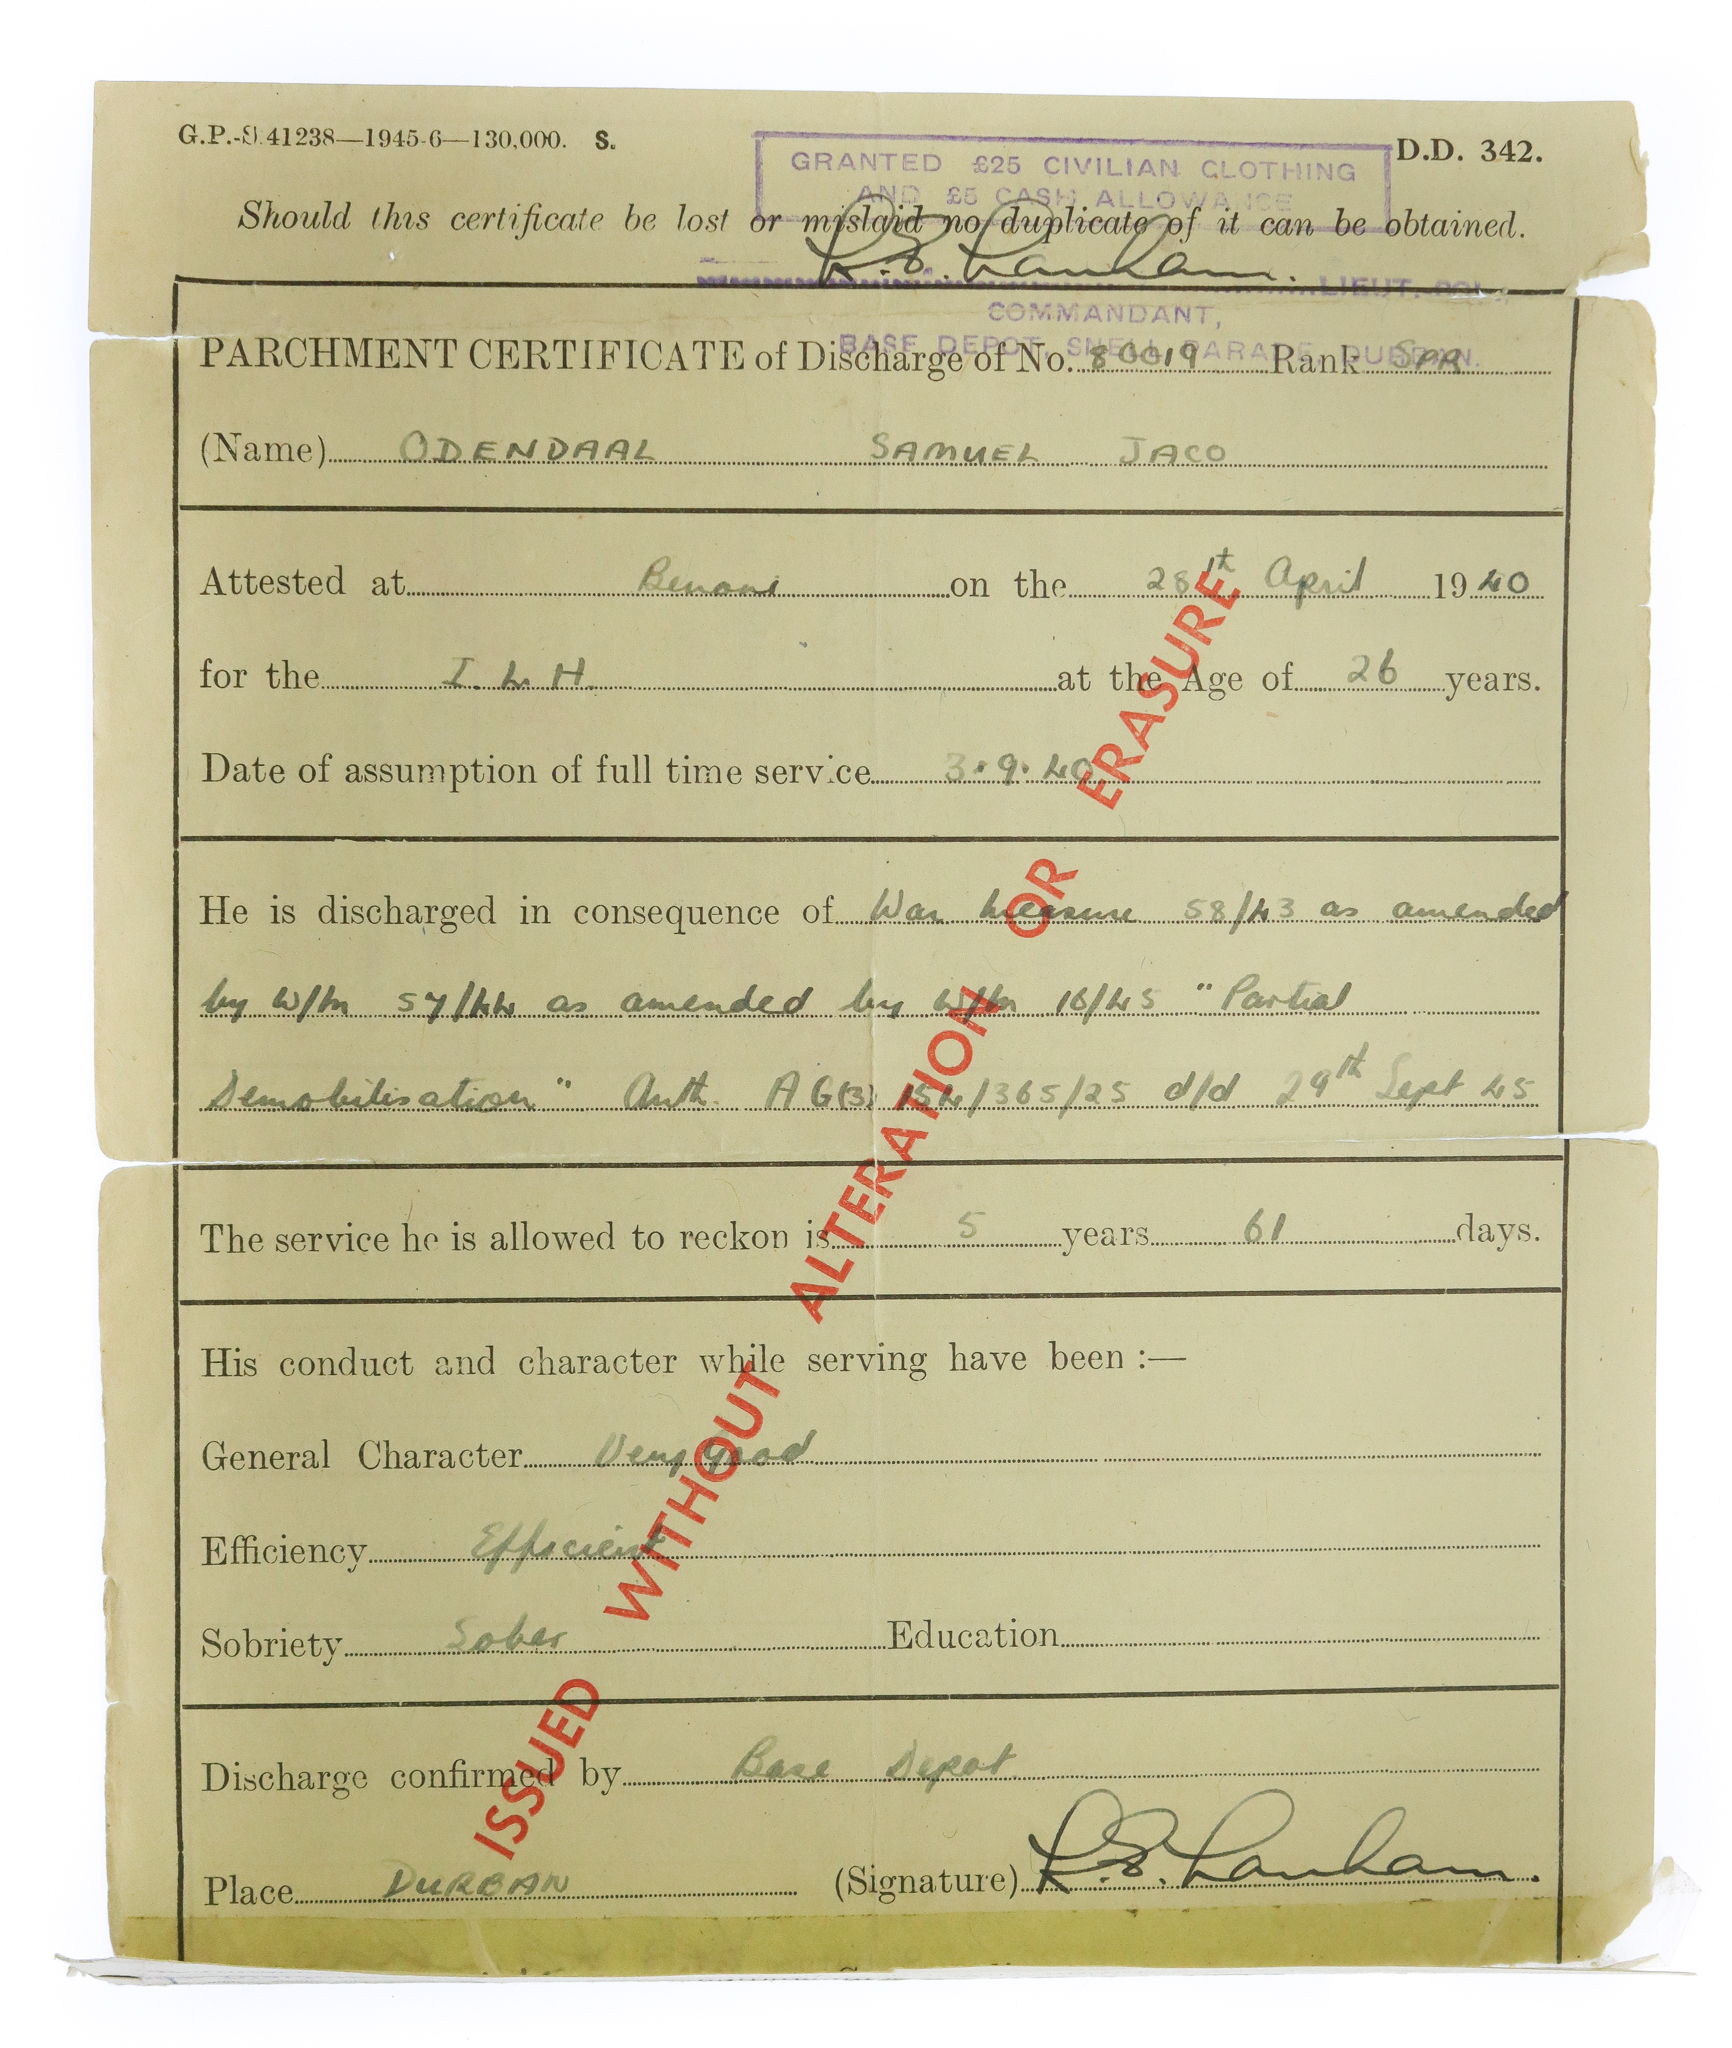 G.P.-S.41238—1945-6—130,000. S.
D.D. 342.
GRANTED £25 CIVILIAN CLOTHING
AND £5 CASH ALLOWANCE
Should this certificate be lost or mislaid no duplicate of it can be obtained.
LIEUT. COL.
COMMANDANT,
BASE DEPOT, SNELL PARADE, DURBAN.
PARCHMENT CERTIFICATE of Discharge of No. 80019 Rank SPR
(Name) ODENDAAL SAMUEL JACO
Attested at Benoni on the 28th April 1940
for the I. L. H. at the Age of 26 years.
Date of assumption of full time service 3.9.40
He is discharged in consequence of War measure 58/43 as amended
by W/m 57/44 as amended by W/m 16/45 "Partial
Demobilisation" Auth. AG(3) 154/365/25 d/d 29th Sept 45
The service he is allowed to reckon is 5 years 61 days.
His conduct and character while serving have been :—
General Character Very Good
Efficiency Efficient
Sobriety Sober Education
Discharge confirmed by Base Depot
Place DURBAN (Signature)
ISSUED WITHOUT ALTERATION OR ERASURE